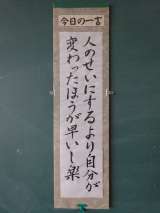 今日の一言
人のせいにするより自分が
変わったほうが早いし楽